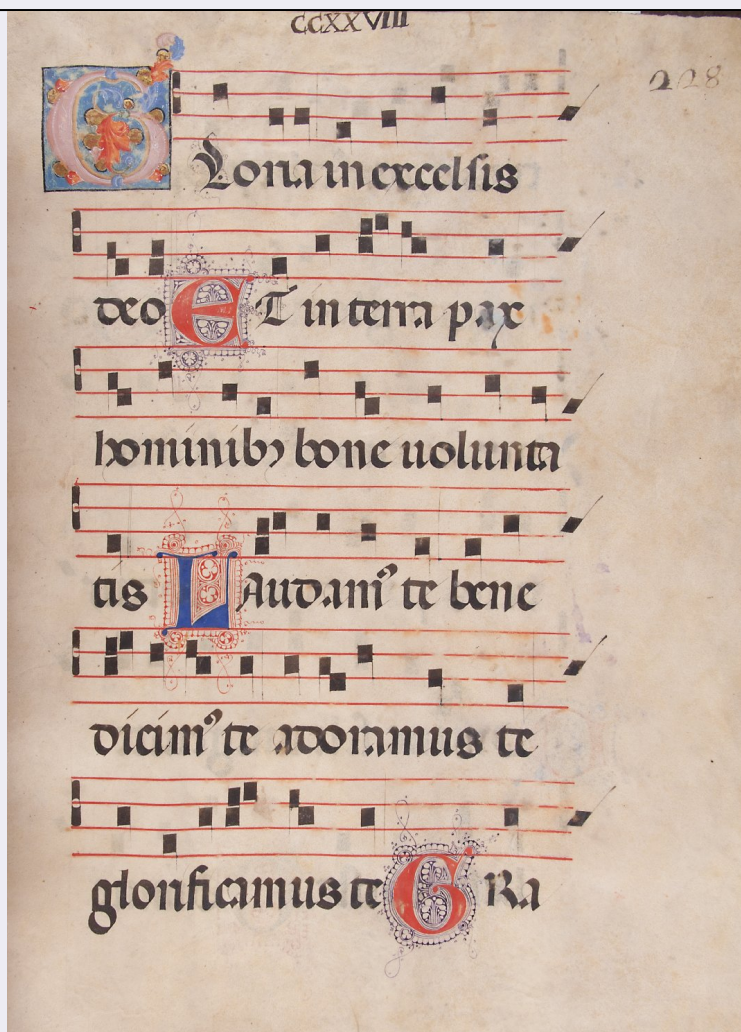 CCXXVIII
228
Gloria in excelsis
deo Et in terra pax
hominibꝰ bone uolunta
tis Laudamꝰ te bene
dicimꝰ te adoramus te
glorificamus te Gra